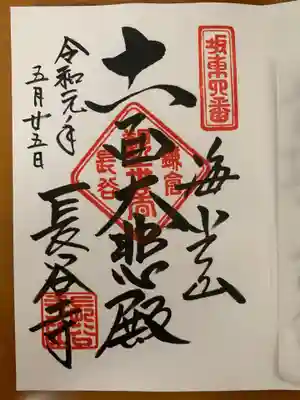 坂東四番
海光山
十一面大悲殿
鎌倉
観世音
長谷
長谷寺
令和元年
五月廿五日